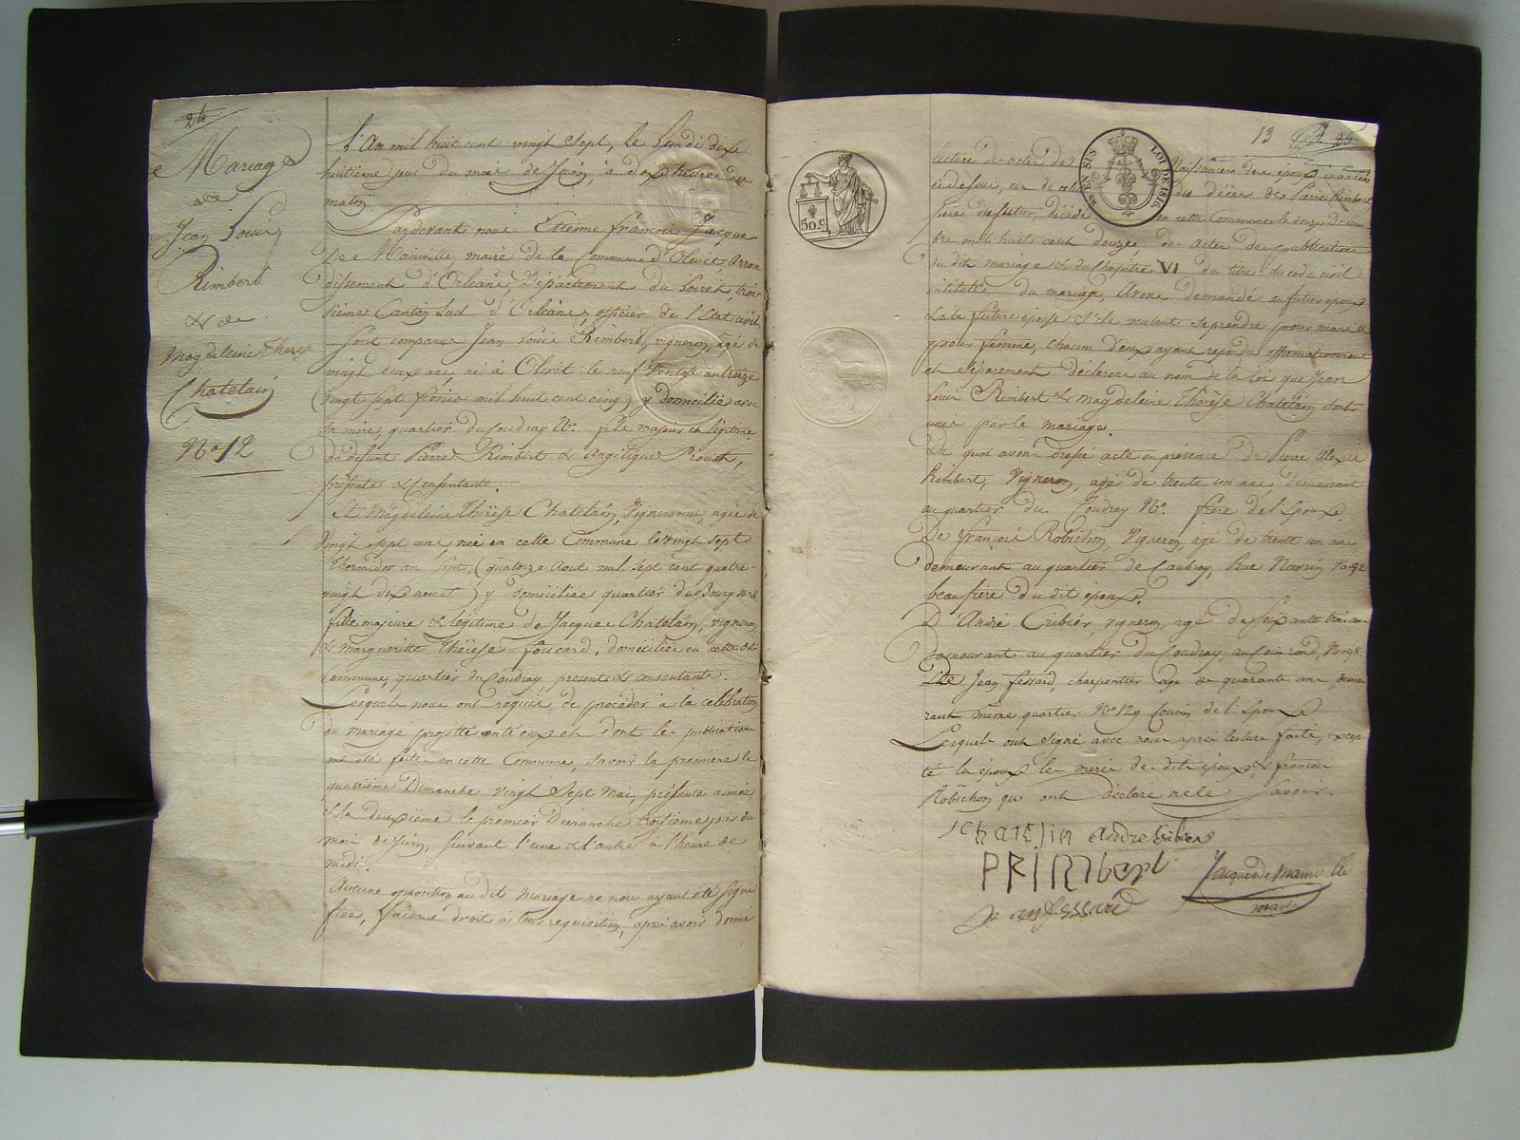 Mariage
de
Jean Louis
Rimbert
& de
Magdeleine Therese
Chatelain
No. 12
L'An mil huit cent vingt sept, le Lundi dixe
huitieme jour du mois de Juin, à dix heures du
matin
Pardevant nous Etienne François Jacque
De Mainville, maire de la Commune d'Olivet, Arron
dissement d'Orléans, Département du Loiret, troi
sieme Canton Sud d'Orléans, officier de l'Etat civil
Sont comparus Jean Louis Rimbert, vigneron, agé de
vingt deux ans, né à Olivet le neuf Ventose an treize
(vingt sept février mil huit cent cinq) y domicilié avec
sa mère, quartier du Coudray No. fils majeur et légitime
de défunt Pierre Rimbert & Angélique
présente & consentante.
Et Magdeleine Thérèse Chatelain, Vigneronne, agée de
vingt sept ans, née en cette Commune le vingt sept
Thermidor an Sept, (quatorze Aout mil sept cent quatre-
vingt dix neuf) y domiciliée quartier du Bourg
fille majeure & légitime de Jacques Chatelain, vigneron
& Marguerite Thérèse Foucard, domiciliés en cette
commune, quartier du Coudray présents & consentants.
Lesquels nous ont requis de procéder à la célébration
du mariage projetté entr'eux et dont les publications
ont été faites en cette Commune, Savoir la premiere le
quatrieme Dimanche vingt Sept Mai, présente année
& la deuxieme le premier Dimanche troisieme jour du
mois de Juin, suivant l'une & l'autre à l'heure de
midi.
Aucune opposition au dit mariage ne nous ayant été signi
fiée, faisant droit à leur requisition, après avoir donné
13
lecture de actes de Naissances des époux
ci dessus, de celui du décès de Pierre Rimbert
père du futur, décédé en cette Commune le
bre mil huit cent douze, des actes de publications
du dit mariage & du Chapitre VI du titre du code civil
intitulé du mariage, Avons demandé au futur époux
& à la future épouse s'ils veulent se prendre pour mari &
pour femme, chacun d'eux ayant repondu affirmativement
et séparément declarons au nom de la loi que Jean
Louis Rimbert & Magdeleine Thérèse Chatelain sont
unis par le mariage.
De quoi avons dressé acte en présence de Pierre
Rimbert, Vigneron, agé de trente un ans, demeurant
au quartier du Coudray No. frère de l'Epoux.
De François Robichon, Vigneron, agé de trente un ans
demeurant au quartier de Caubray, Rue
beaufrère du dit époux.
D'André Cribier, vigneron, agé de soixante trois ans
demeurant au quartier du Coudray,
De Jean Fessard, charpentier agé de quarante ans, demeu
rant même quartier No 129 Cousin de l'Epouse
Lesquels ont signé avec nous après lecture faite, excep
té les époux les mères des dits époux & François
Robichon qui ont déclaré ne le savoir.
J Chatelin André Cribier
P RiMbert
Jacque de Mainville
Jean fessard
maire
BUREN SIS LOI DE 1816
50 c.